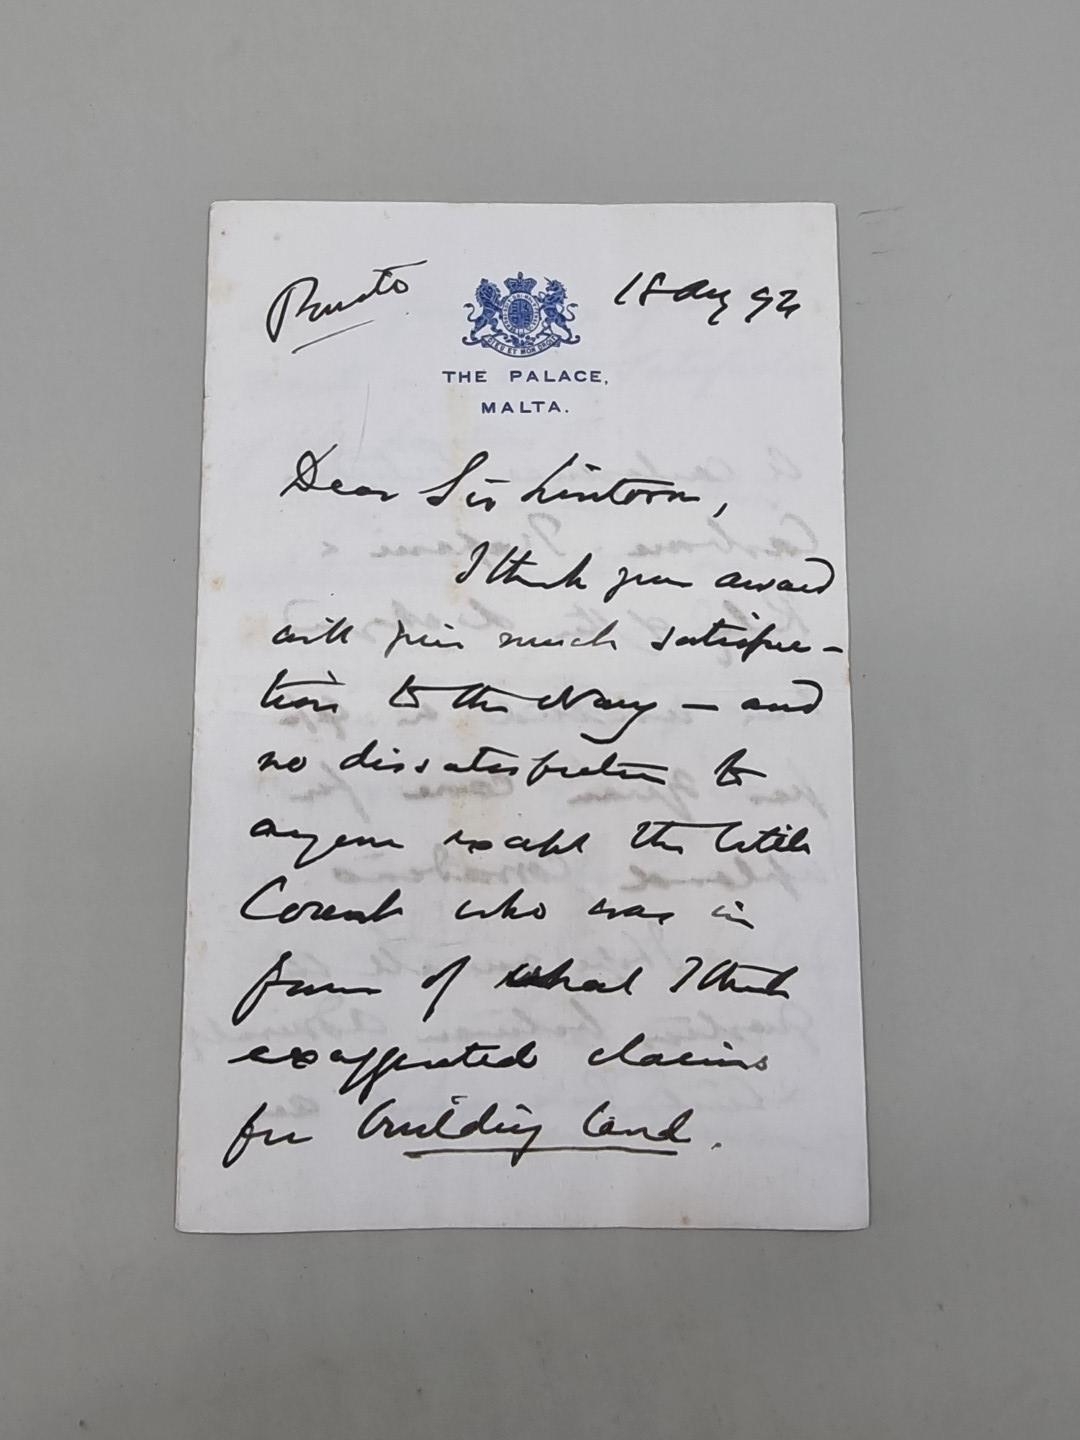 Private
18 Aug 92
DIEU ET MON DROIT
THE PALACE,
MALTA.
Dear Sir Lintorn,
I think your award
will give much satisfac-
tion to the Navy - and
no dissatisfaction to
anyone except the little
who was in
favour of what I think
exaggerated claims
for building land.